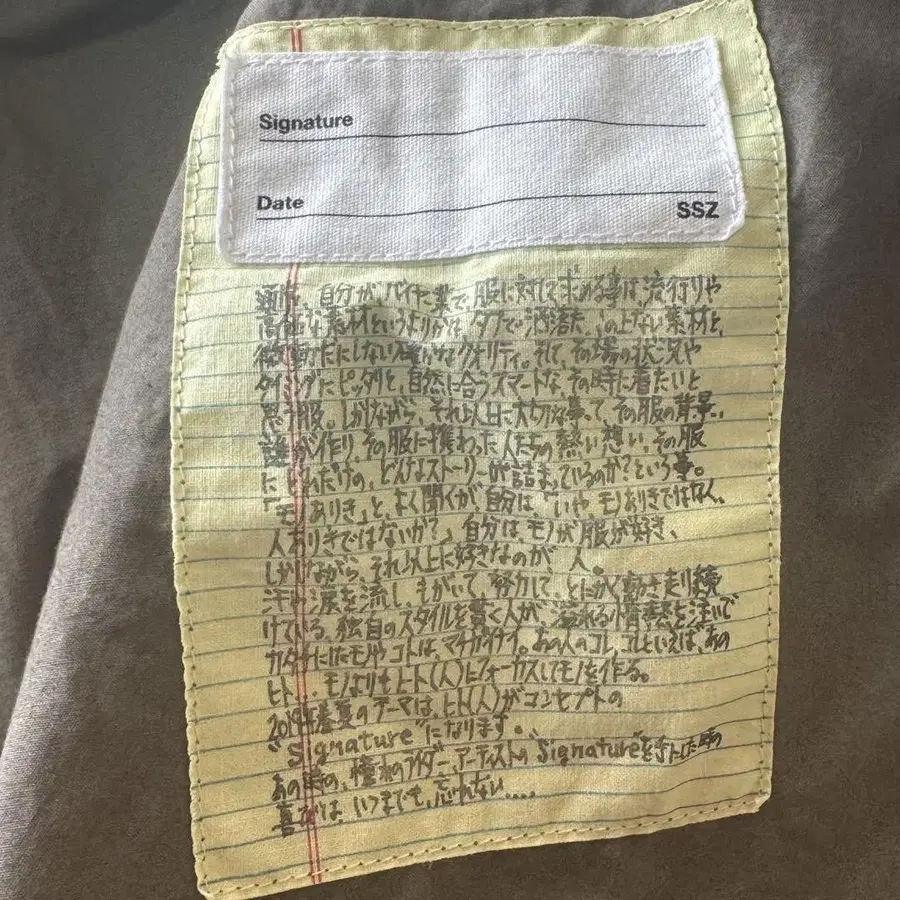 Signature
Date
SSZ
自分がバイヤー業で、服に対して求める事は、流行りや
高価な素材というよりかは、タフで洒落た、この上ない素材と、
クオリティ。そして、その場の状況や
タイミングにピッタリと、自然に合うスマートな、その時に着たいと
思う服。しかしながら、それ以上に大切な事って、その服の背景。
誰が作り、その服に携わった人たちの熱い想い、その服
にどれだけの、どんなストーリーが詰まっているのか?という事。
「モノありき」と、よく聞くが、自分は「いや、モノありきではなく、
人ありきではないか?」自分は、モノが服が好き、
しかしながら、それ以上に好きなのが、人。
汗や涙を流し、もがいて、努力して、とにかく動き走り続
けている。独自のスタイルを貫く人が、溢れる情熱を注いで
カタチにしたモノやコトは、マチガイナイ。あの人のコレ、コレといえば、あの
ヒト... モノよりもヒト(人)にフォーカスしてモノを作る。
2019年春夏のテーマは、ヒト(人)がコンセプトの
"Signature"になります。
あの時の、憧れのライダー、アーティストの"Signature"を手にした時の
喜びは いつまでも、忘れない....